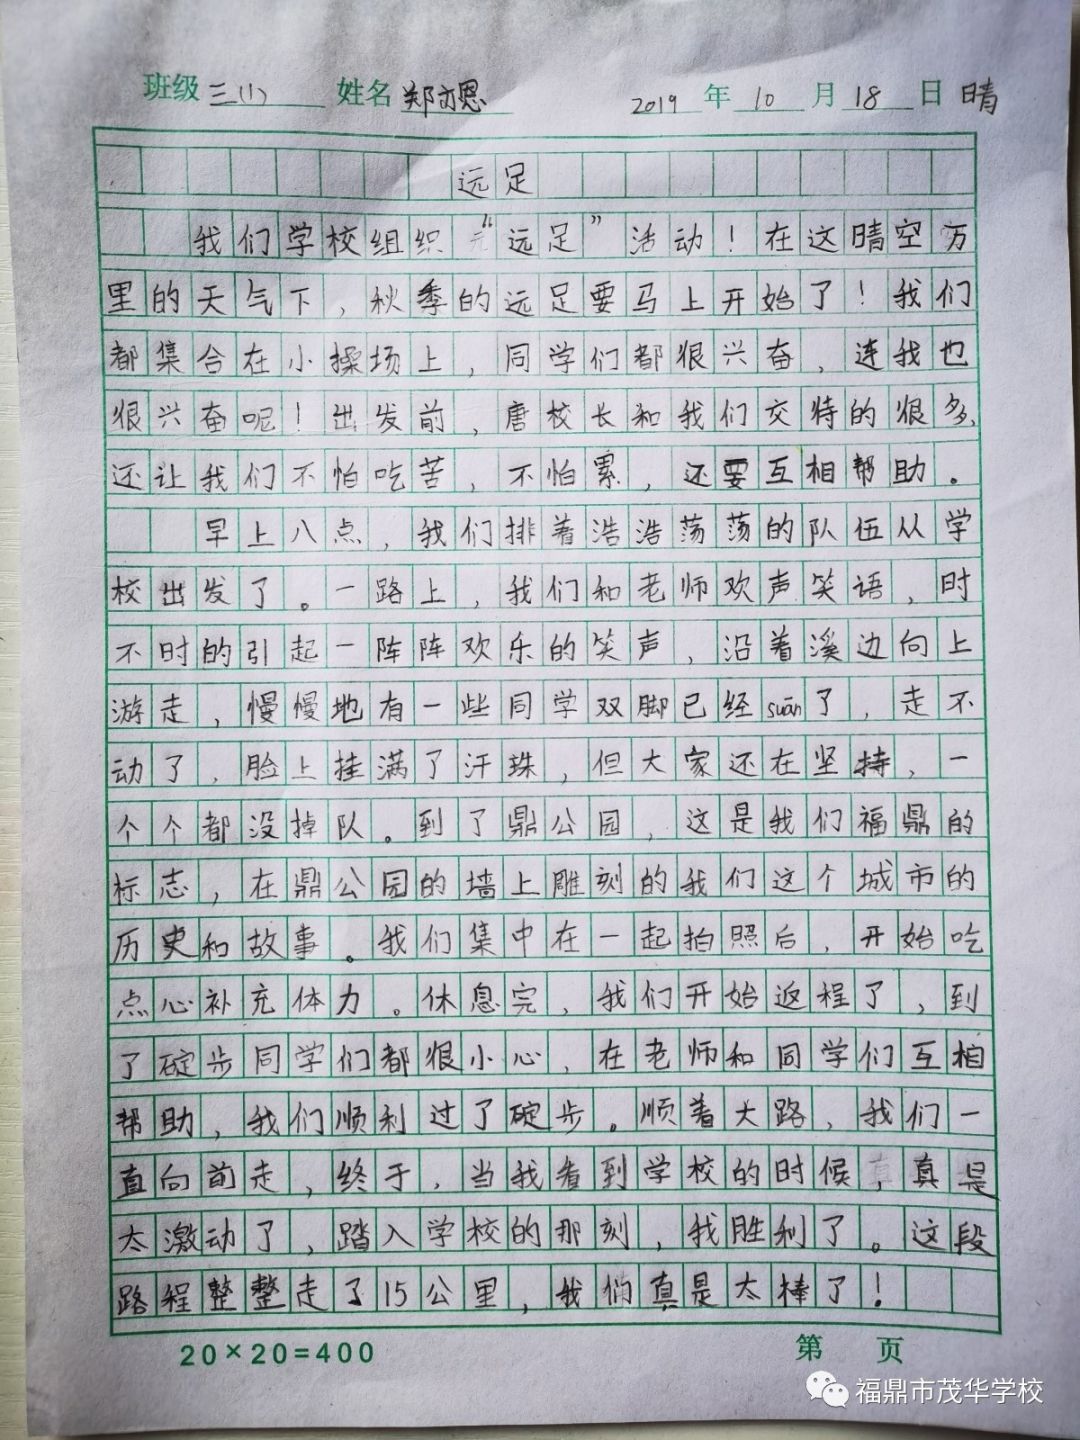 班级 三(1) 姓名 郑亦恩 2019 年 10 月 18 日 晴
远足
我们学校组织“远足”活动！在这晴空万
里的天气下，秋季的远足要马上开始了！我们
都集合在小操场上，同学们都很兴奋，连我也
很兴奋呢！出发前，唐校长和我们交待的很多，
还让我们不怕吃苦，不怕累，还要互相帮助。
早上八点，我们排着浩浩荡荡的队伍从学
校出发了。一路上，我们和老师欢声笑语，时
不时的引起一阵阵欢乐的笑声，沿着溪边向上
游走，慢慢地有一些同学双脚已经suān了，走不
动了，脸上挂满了汗珠，但大家还在坚持，一
个个都没掉队。到了鼎公园，这是我们福鼎的
标志，在鼎公园的墙上雕刻的我们这个城市的
历史和故事。我们集中在一起拍照后，开始吃
点心补充体力。休息完，我们开始返程了，到
了碇步同学们都很小心，在老师和同学们互相
帮助，我们顺利过了碇步。顺着大路，我们一
直向前走，终于，当我看到学校的时候，真是
太激动了，踏入学校的那刻，我胜利了。这段
路程整整走了15公里，我们真是太棒了！
20×20=400 第 页
福鼎市茂华学校